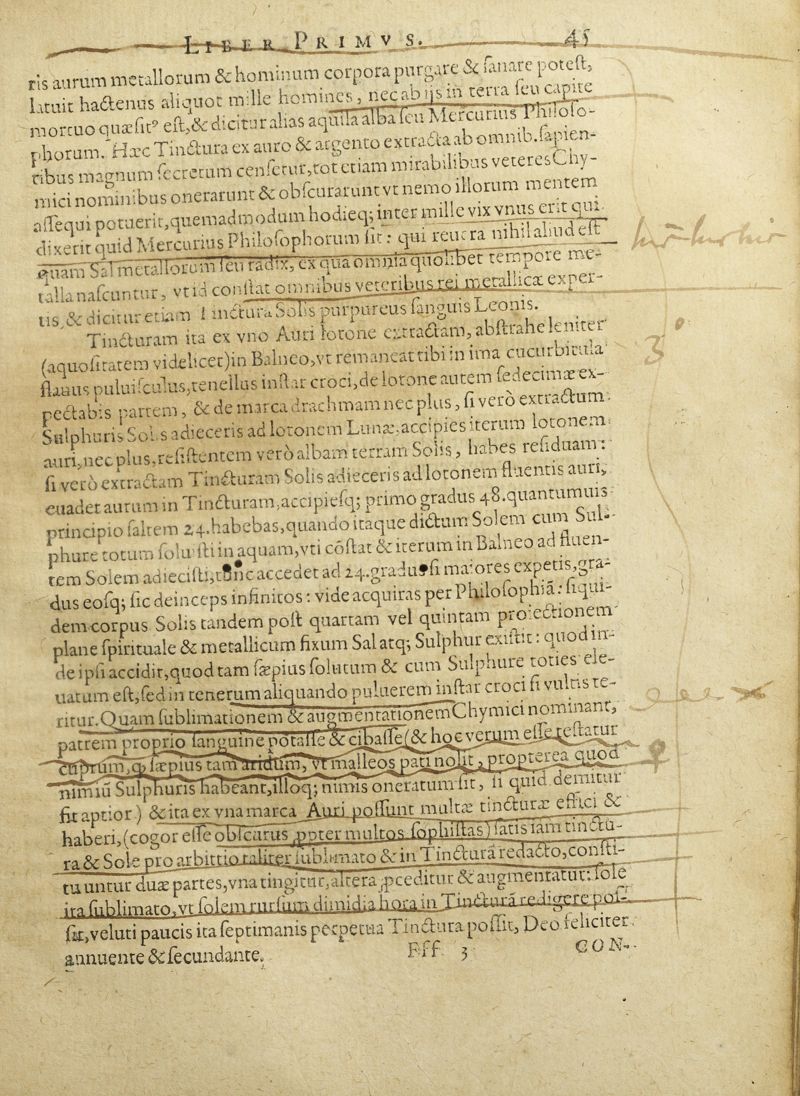 LIBER PRIMVS. 45
ris aurum metallorum & hominum corpora purgare & sanare potest,
latuit hactenus aliquot mille homines, nec ab ijs in terra seu capite
mortuo quæsit⁹ est, & dicitur alias aquila alba seu Mercurius Philoso-
phorum. Hæc Tinctura ex auro & argento extracta ab omnib. sapien-
tibus magnum secretum censetur, tot etiam mirabilibus veteres Chy-
mici nominibus onerarunt & obscurarunt vt nemo illorum mentem
assequi potuerit, quemadmodum hodieq; inter mille vix vnus erit qui
dixerit quid Mercurius Philosophorum sit: qui reuera nihil aliud est
quam Sal metallorum seu radix, ex qua omnia quolibet tempore me-
talla nascuntur, vt id constat omnibus veteribus rei metallicæ exper-
tis, & dicitur etiam Tinctura Solis purpureus sanguis Leonis.
Tincturam ita ex vno Auri lotone extractam, abstrahe leniter
(aquositatem videlicet) in Balneo, vt remaneat tibi in ima cucurbitula
flauus puluisculus, tenellus instar croci, de lotone autem sedecimæ ex-
pectabis partem, & de marca drachmam nec plus, si verò extractum
Sulphuris Solis adieceris ad lotonem Lunæ, accipies iterum lotonem
auri, nec plus, resistentem verò albam terram Solis, habes residuam:
si verò extractam Tincturam Solis adieceris ad lotonem fluentis auri,
euadet aurum in Tincturam, accipiesq; primo gradus 48. quantumuis
principio saltem 24. habebas, quando itaque dictum Solem cum Sul-
phure totum soluisti in aquam, vti cōstat & iterum in Balneo ad fluen-
tem Solem adiecisti, tūnc accedet ad 24. gradus si maiores expetis, gra-
dus eosq; sic deinceps infinitos: vide acquiras per Philosophiā: siqui-
dem corpus Solis tandem post quartam vel quintam proiectionem
plane spirituale & metallicum fixum Sal atq; Sulphur existit: quod in-
de ipsi accidit, quod tam sæpius solutum & cum Sulphure toties ele-
uatum est, sed in tenerum aliquando puluerem instar croci si vultis te-
ritur. Quam sublimationem & augmentationem Chymici nominant,
patrem proprio sanguine potasse & cibasse (& hoc verum esse testatur
cuprum, q, sæpius tam aridum, vt malleos pati nolit, propterea quod
nimiū Sulphuris habeant, illoq; nimis oneratum sit, si quid demitur
fit aptior) & ita ex vna marca Auri possunt multæ tincturæ effici &
haberi, (cogor esse obscurus ꝓpter multos sophistas) satis iam tinctu-
ra & Sole pro arbitrio taliter sublimato & in Tincturā redacto, consti-
tuuntur duæ partes, vna tingitur, altera ꝓceditur & augmentatur: sole
ita sublimato, vt solem rursum dimidia hora in Tincturā redigere pos-
sit, veluti paucis ita septimanis perpetua Tinctura possit, Deo feliciter
annuente & secundante.
Fff 3 CON-